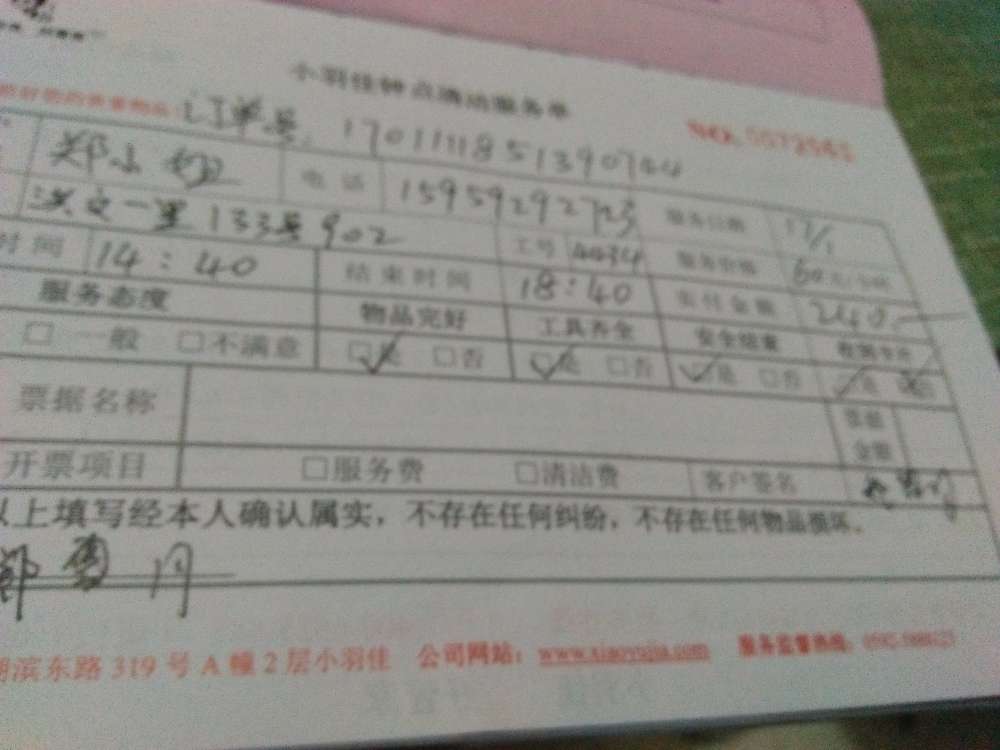 小羽佳钟点清洁服务单
订单号：1701111851390744
NO. 5572543
郑小 电话 15959292723 服务日期 17/1
洪文一里133号902 工号 4434 服务价格 60元/小时
时间 14:40 结束时间 18:40 实付金额 240
服务态度 物品完好 工具齐全 安全结束
□ 一般 □不满意 □是 □否 □是 □否 □是 □否 是
票据名称 票据金额
开票项目 □服务费 □清洁费 客户签名
以上填写经本人确认属实，不存在任何纠纷，不存在任何物品损坏。
郑
湖滨东路 319 号 A 幢 2 层小羽佳 公司网站：www.xiaoyujia.com 服务监督热线：0592